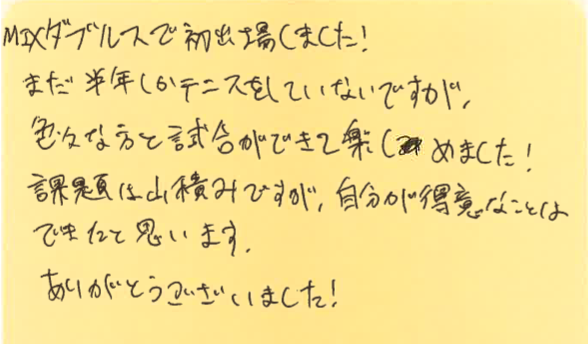 MIXダブルスで初出場しました!
まだ半年しかテニスをしていないですが、
色々な方と試合ができて楽しめました!
課題は山積みですが、自分が得意なことは
できたと思います。
ありがとうございました!